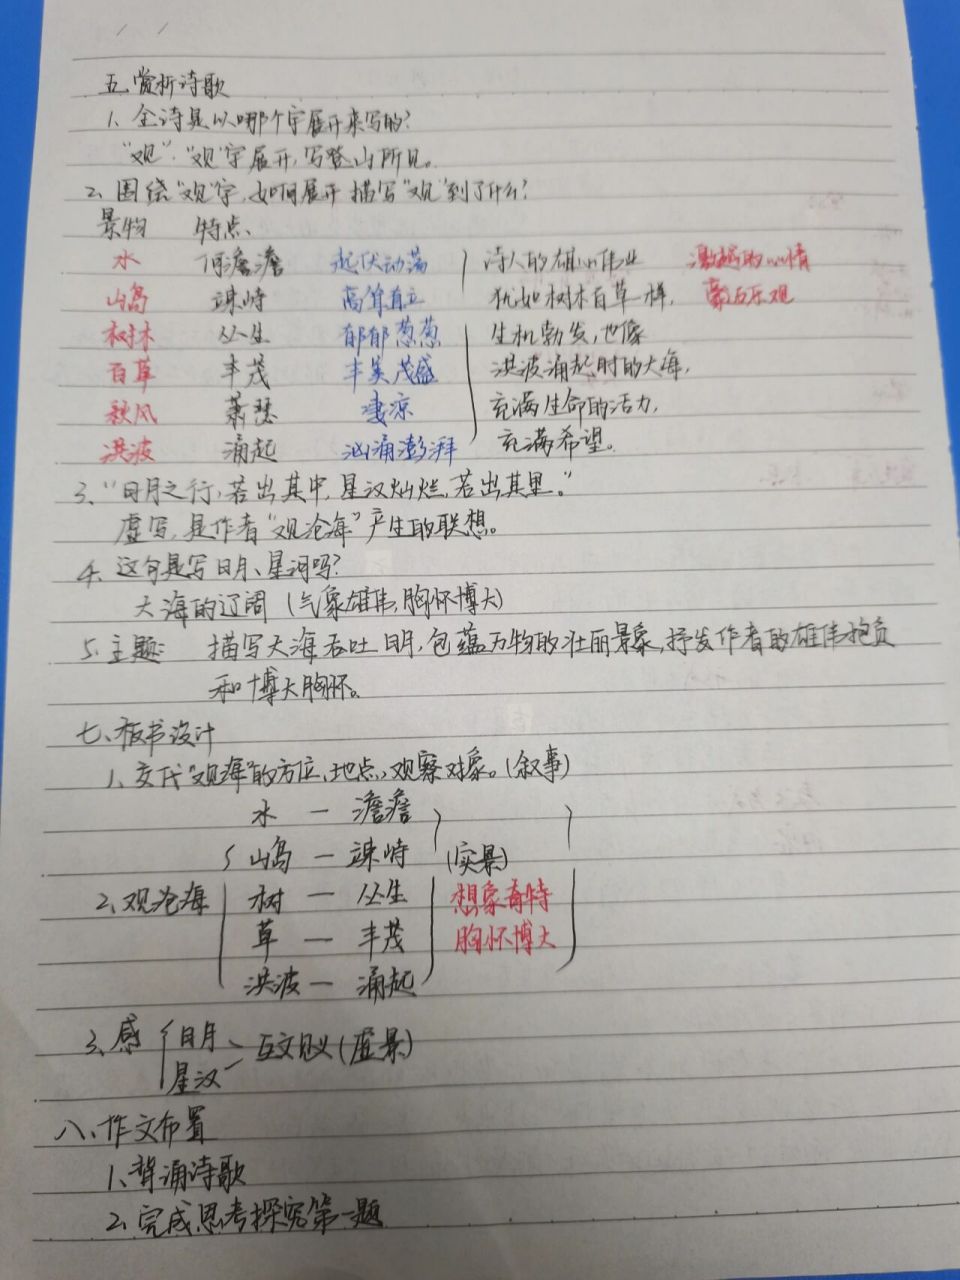 五、赏析诗歌
1、全诗是以哪个字展开来写的?
“观”.“观”字展开,写登山所见。
2、围绕“观”字,如何展开描写“观”到了什么?
景物 特点、
水 何澹澹 起伏动荡 诗人的雄心伟业 激越的心情
山岛 竦峙 高耸直立 犹如树木百草一样, 乐观
树木 丛生 郁郁葱葱 生机勃发,也像
百草 丰茂 丰美茂盛 洪波涌起时的大海,
秋风 萧瑟 凄凉 充满生命的活力,
洪波 涌起 汹涌澎湃 充满希望。
3、“日月之行,若出其中,星汉灿烂,若出其里。”
虚写,是作者“观沧海”产生的联想。
4、这句是写日月、星河吗?
大海的辽阔(气象雄伟,胸怀博大)
5、主题: 描写大海吞吐日月,包蕴万物的壮丽景象,抒发作者的雄伟抱负
和博大胸怀。
七、板书设计
1、交代“观海”的方位、地点、观察对象。(叙事)
水 — 澹澹
山岛 — 竦峙 (实景)
2、观沧海 树 — 丛生 想象奇特
草 — 丰茂 胸怀博大
洪波 — 涌起
3、感 日月 互文见义(虚景)
星汉
八、作文布置
1、背诵诗歌
2、完成思考探究第一题